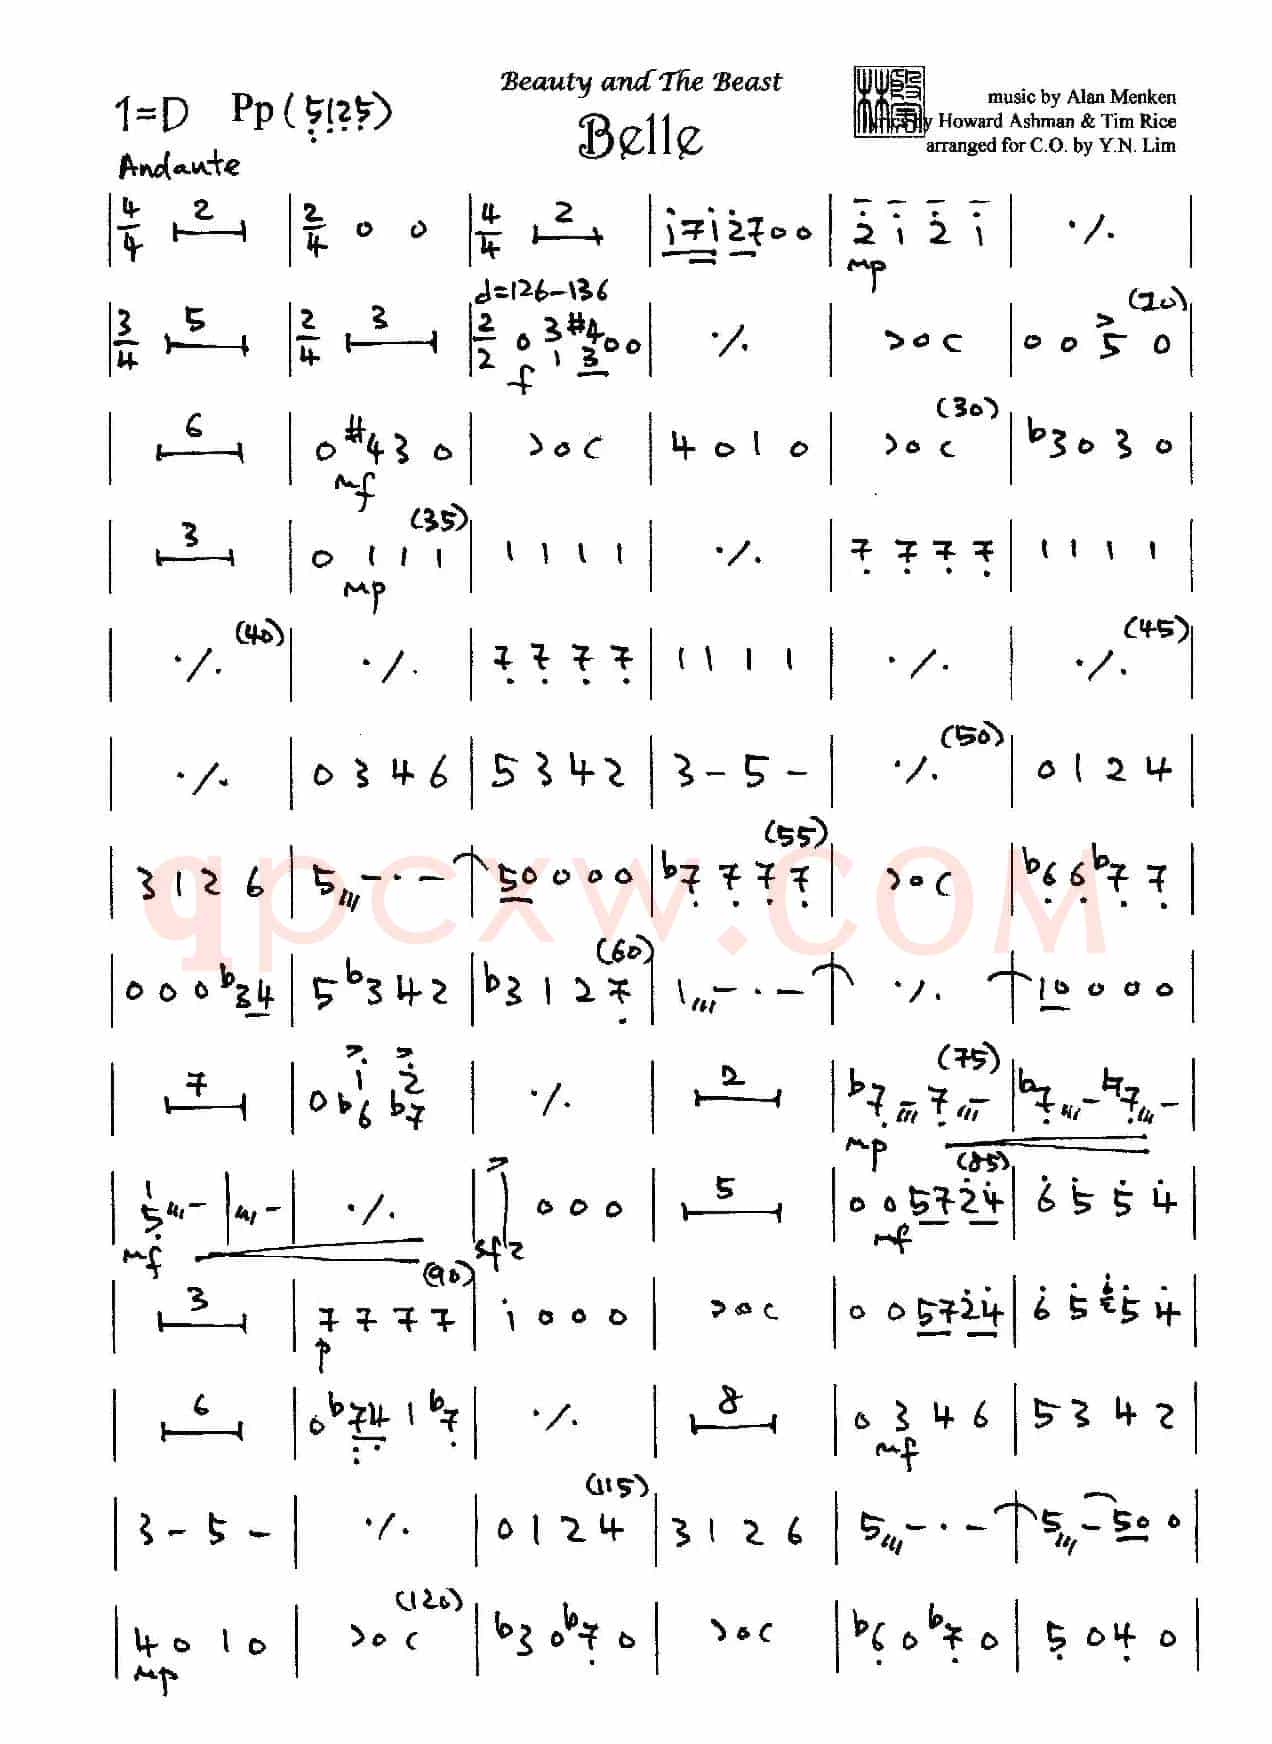 Beauty and The Beast
1=D Pp (5̣1̣2̣5̣)
Belle
music by Alan Menken
y Howard Ashman & Tim Rice
arranged for C.O. by Y.N. Lim
Andante
| 4/4 2 | 2/4 0 0 | 4/4 2 | i 7 i 2̇ 7 0 0 | 2̇ i 2̇ i | ·/. |
mp
d=126-136
(20)
| 3/4 5 | 2/4 3 | 2/2 0 3 #4 0 0 | ·/. | >oc | 0 0 5 0 |
1 3
f
(30)
| 6 | 0 #4 3 0 | >oc | 4 0 1 0 | >oc | b3 0 3 0 |
mf
(35)
| 3 | 0 1 1 1 | 1 1 1 1 | ·/. | 7̣ 7̣ 7̣ 7̣ | 1 1 1 1 |
mp
(40) (45)
| ·/. | ·/. | 7̣ 7̣ 7̣ 7̣ | 1 1 1 1 | ·/. | ·/. |
(50)
| ·/. | 0 3 4 6 | 5 3 4 2 | 3 - 5 - | ·/. | 0 1 2 4 |
(55)
| 3 1 2 6 | 5 - · - | 5 0 0 0 0 | b7̣ 7̣ 7̣ 7̣ | >oc | b6̣ 6̣ b7̣ 7̣ |
qpcxw.COM
(60)
| 0 0 0 b3 4 | 5 b3 4 2 | b3 1 2 7̣ | 1 - · - | ·/. | 1 0 0 0 0 |
(75)
| 7 | 0 b6 b7 | ·/. | 2 | b7̣ - 7̣ - | b7̣ - ♮7̣ - |
i 2̇
mp
(85)
| 5̣ - | - | ·/. | 0 0 0 | 5 | 0 0 5 7 2̇ 4̇ | 6̇ 5̇ 5̇ 4̇ |
1
mf sfz mf
(90)
| 3 | 7 7 7 7 | i 0 0 0 | >oc | 0 0 5 7 2̇ 4̇ | 6̇ 5̇ 5̇ 4̇ |
p
| 6 | 0 b7̣ 4̣ 1 b7̣ | ·/. | 8 | 0 3 4 6 | 5 3 4 2 |
mf
(115)
| 3 - 5 - | ·/. | 0 1 2 4 | 3 1 2 6 | 5 - · - | 5 - 5 0 0 |
(120)
| 4 0 1 0 | >oc | b3 0 b7̣ 0 | >oc | b6̣ 0 b7̣ 0 | 5̣ 0 4̣ 0 |
mp